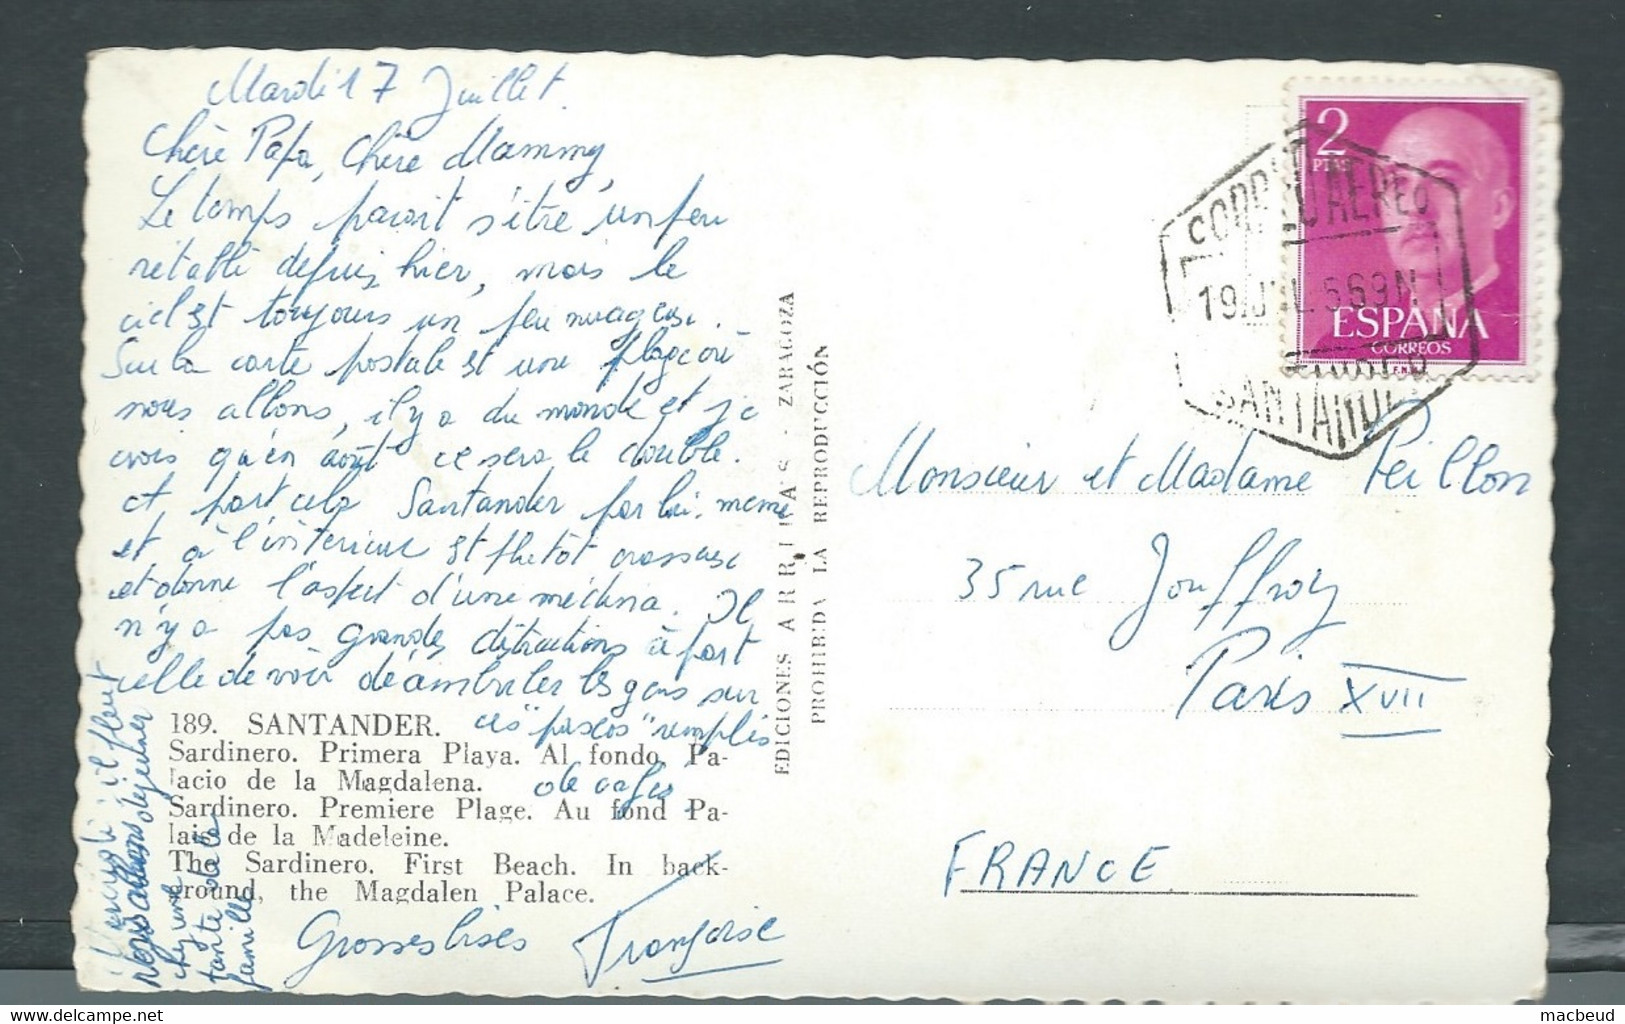 Mardi 17 Juillet.
Chère Papa, Chère Mammy,
Le temps parait s'être un peu
rétabli depuis hier, mais le
ciel est toujours un peu nuageux.
Sur la carte postale est une plage où
nous allons, il y a du monde et je
crois qu'en août ce sera le double.
et part cela Santander par lui-même
et à l'intérieur est plutôt crasseux
et donne l'aspect d'une médina. Il
n'y a pas grandes distractions à part
celle de voir déambuler les gens sur
ces "paseos" remplis
de cafés.
189. SANTANDER.
Sardinero. Primera Playa. Al fondo, Pa-
lacio de la Magdalena.
Sardinero. Premiere Plage. Au fond Pa-
lais de la Madeleine.
The Sardinero. First Beach. In back-
ground, the Magdalen Palace.
Grosses bises Françoise
il pleut
Nous allons déjeuner
chez une
tante de la
famille
EDICIONES ARRIBAS - ZARAGOZA
PROHIBIDA LA REPRODUCCIÓN
2
PTAS
ESPAÑA
CORREOS
F.N.M.T.
CORREO AEREO
19 JUL
SANTANDER
Monsieur et Madame Peillon
35 rue Jouffroy
Paris XVII
FRANCE
macbeud